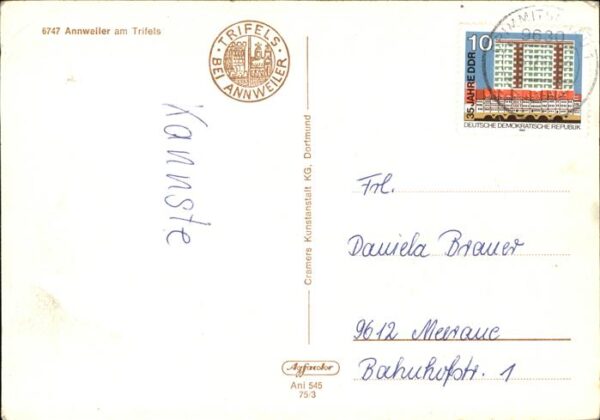 6747 Annweiler am Trifels
· TRIFELS ·
BEI ANNWEILER
Kannste
Cramers Kunstanstalt KG, Dortmund
Agfacolor
Ani 545
75/3
10
35 JAHRE DDR
DEUTSCHE DEMOKRATISCHE REPUBLIK
9630
Frl.
Daniela Brauer
9612 Meerane
Bahnhofstr. 1